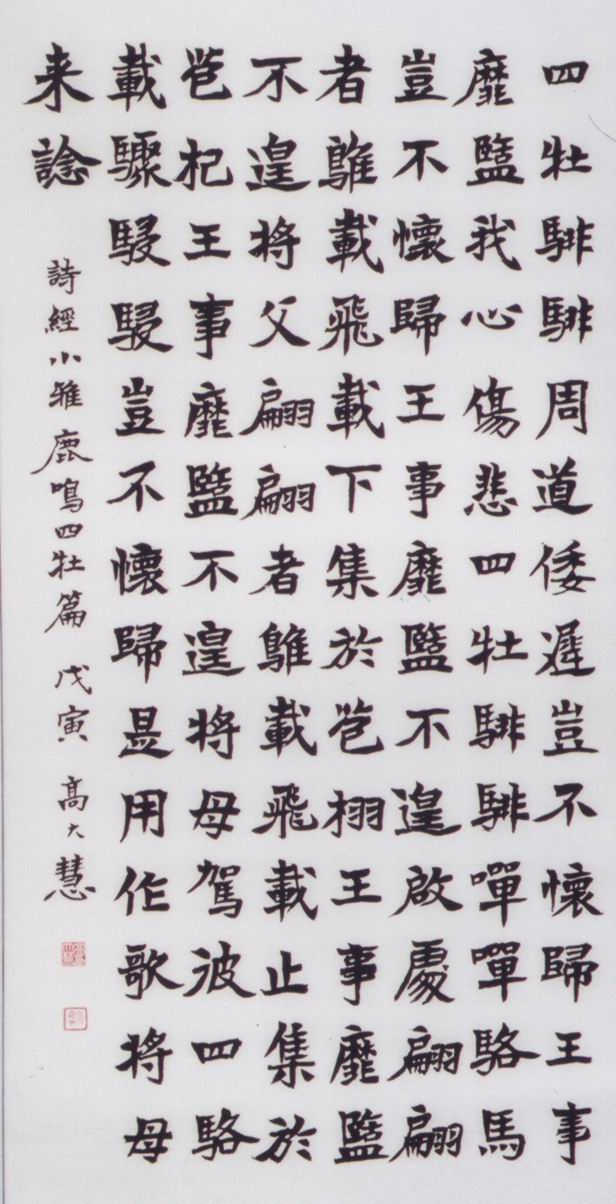 四牡騑騑周道倭遲豈不懷歸王事
靡盬我心傷悲四牡騑騑嘽嘽駱馬
豈不懷歸王事靡盬不遑啟處翩翩
者鵻載飛載下集於苞栩王事靡盬
不遑將父翩翩者鵻載飛載止集於
苞杞王事靡盬不遑將母駕彼四駱
載驟駸駸豈不懷歸是用作歌將母
来諗
詩經小雅鹿鳴四牡篇 戊寅 高大慧